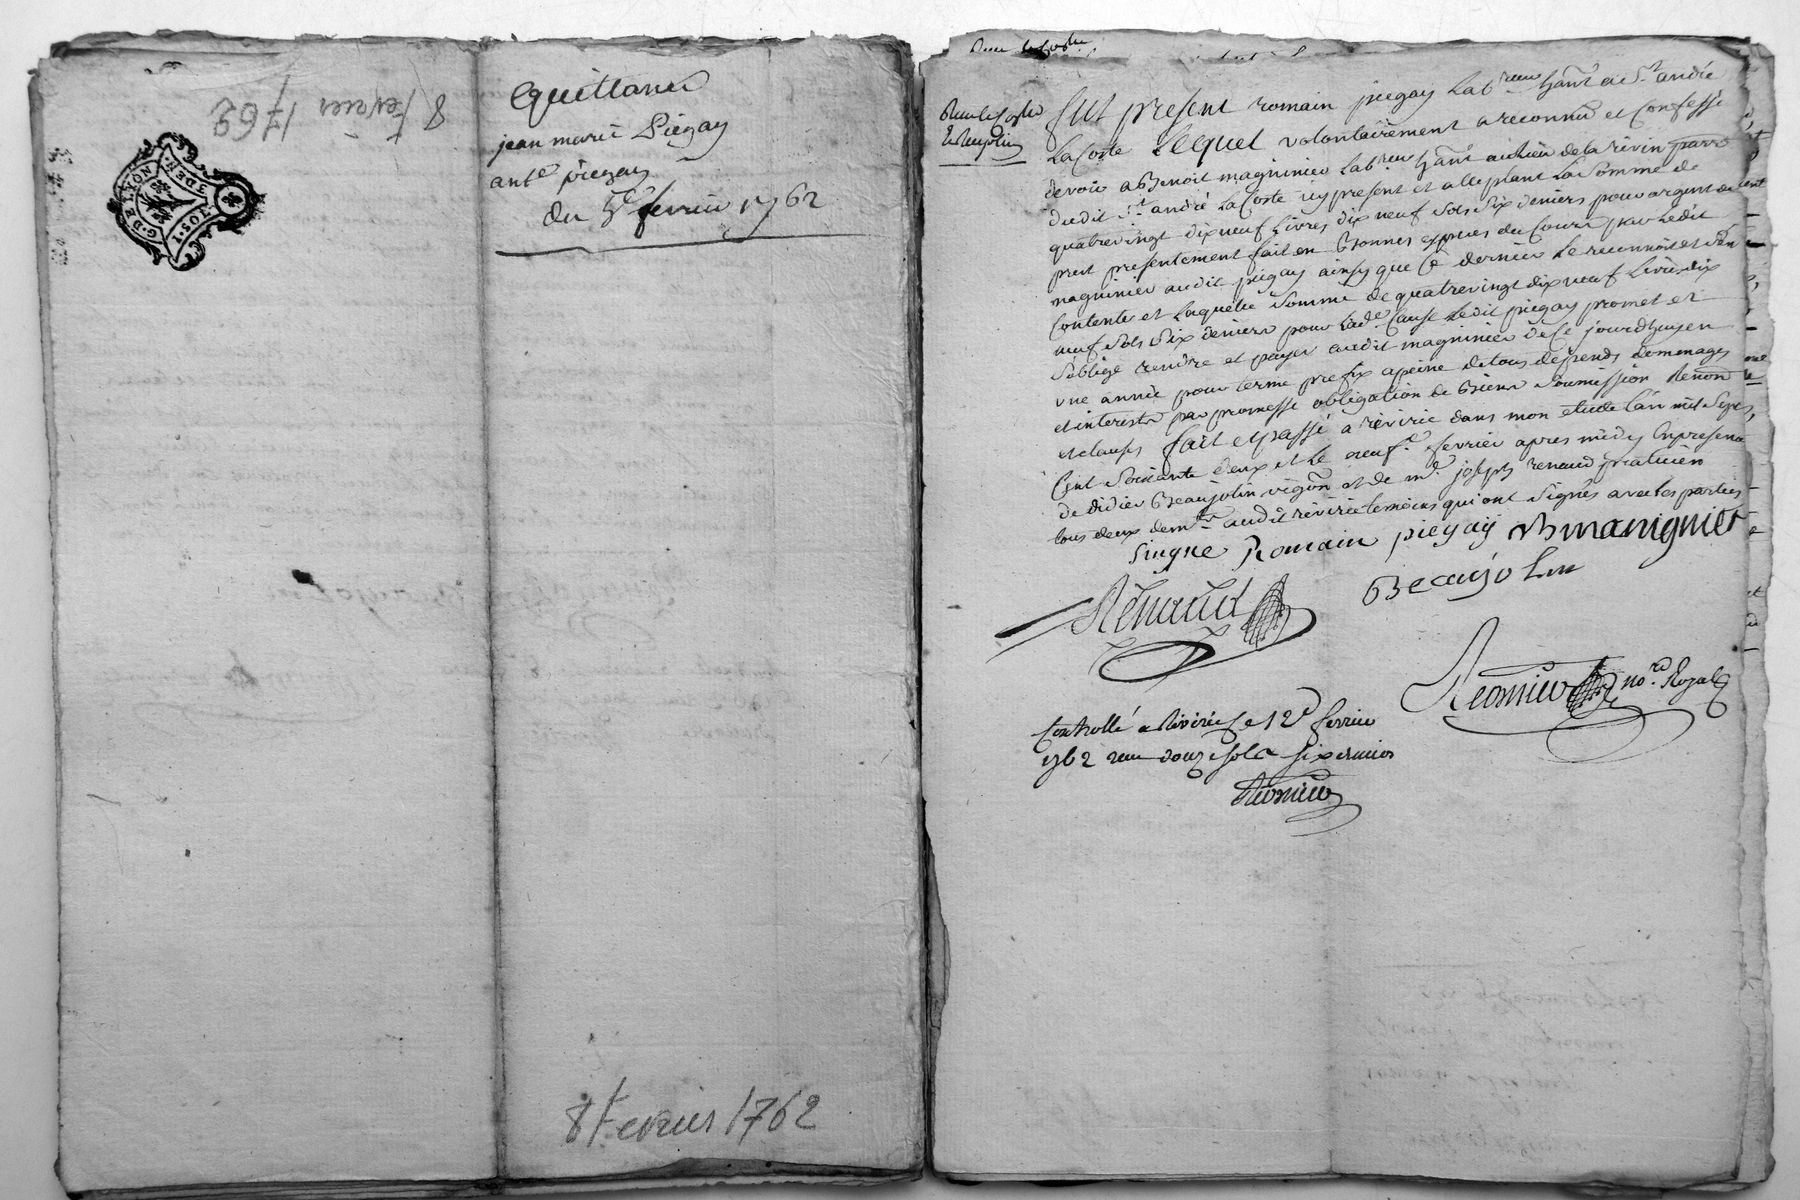 8 fevrier 1762
G. DE LYON
3 DEN.
Quittance
jean marie Piegay
ant.e piegay
du 8.e fevrier 1762
8 Fevrier 1762
fut present romain piegay Lab.reur hant a St andré
La Coste Lequel volontairement a reconnu et confessé
devoir a Benoit magninier Lab.reur hant au lieu de la rivin parr.
dudit St andré La Coste icy present et acceptant La Somme de
quatrevingt dixneuf Livres dix neuf Sols Six deniers pour argent
pret presentement fait en Bonnes especes du Cours par Ledit
magninier audit piegay ainsy que Ce dernier Le reconnoit et
Contente et Laquelle Somme de quatrevingt dix neuf Livres dix
neuf Sols Six deniers pour Lad.e Cause Ledit piegay promet et
S'oblige rendre et payer audit magninier de Ce jourdhuy en
une année pour terme prefix a peine de tous depends domenages
et interests par promesse obligation de Biens Soumission Renon.
et clauses fait et passé a riverie dans mon etude L'an mil Sept
Cent Soixante deux et Le neuf.e fevrier apres midy En presence
de didier Beaujolin vigon et de m.e joseph renaud praticien
tous deux dem.ts audit riverie temoins qui ont Signés avec les parties
Singne Romain piegay B manignier
Renaud
Beaujolin
no.re Royal
Controllé a Riverie Le 12 fevrier
1762 recu douze sols six deniers